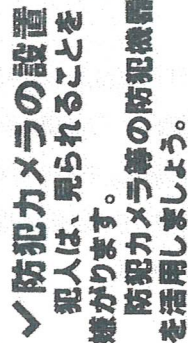 ✓防犯カメラの設置
犯人は、見られることを
嫌がります。
防犯カメラ等の防犯機器
を活用しましょう。